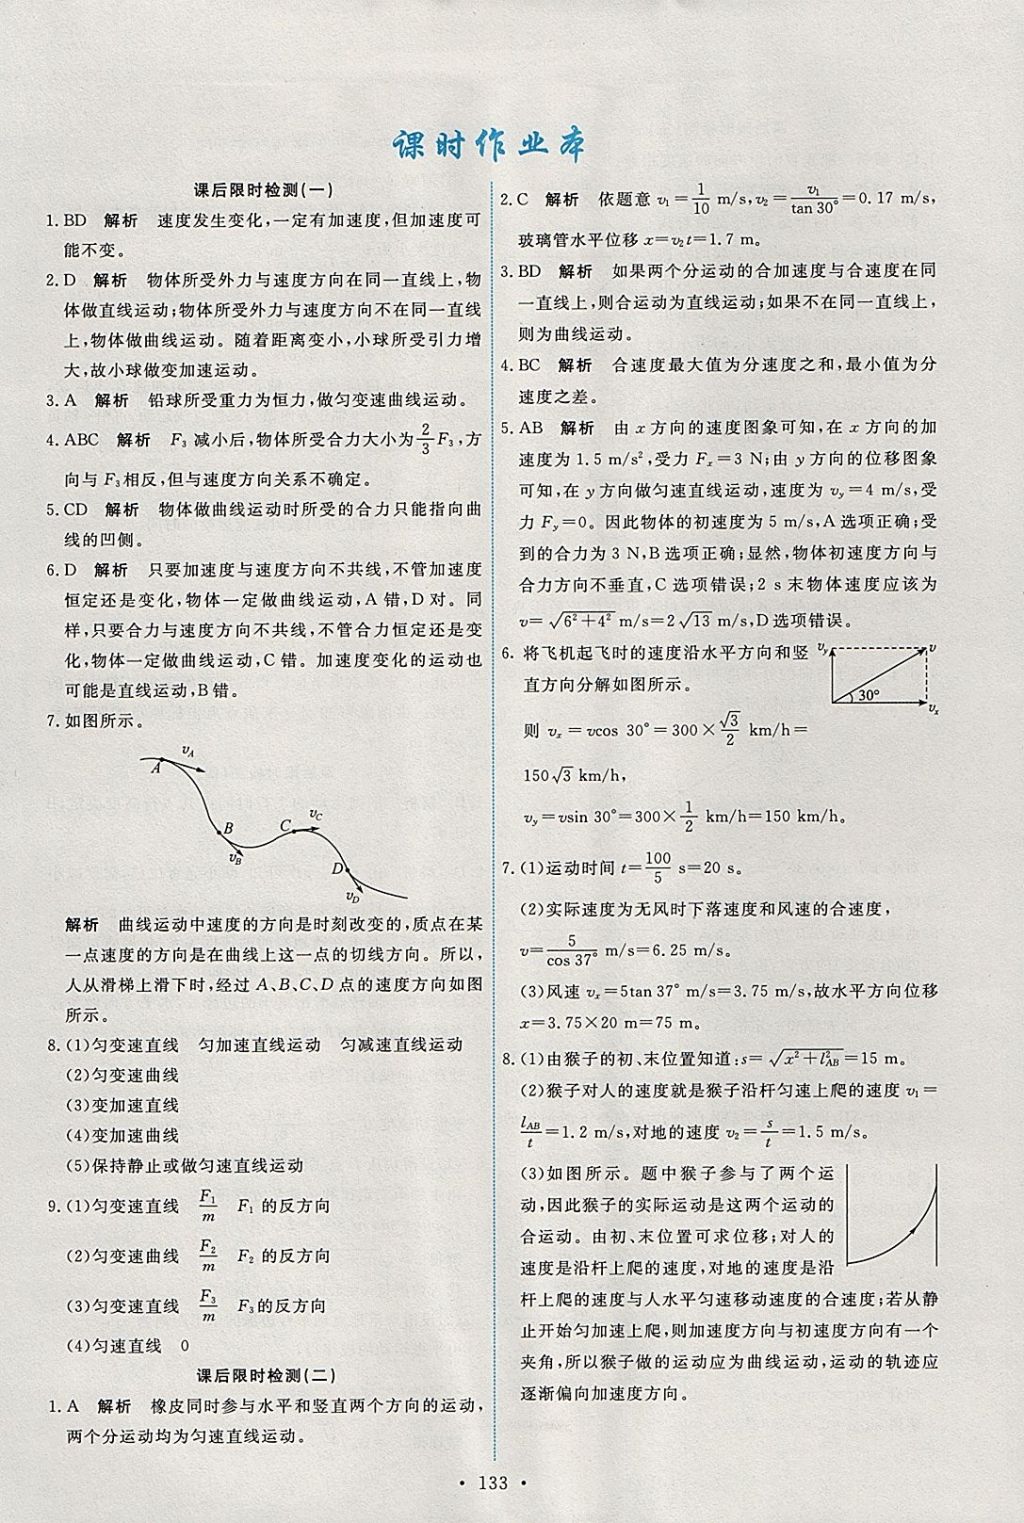 课时作业本
课后限时检测(一)
1. BD 解析 速度发生变化,一定有加速度,但加速度可
能不变。
2. D 解析 物体所受外力与速度方向在同一直线上,物
体做直线运动;物体所受外力与速度方向不在同一直线
上,物体做曲线运动。随着距离变小,小球所受引力增
大,故小球做变加速运动。
3. A 解析 铅球所受重力为恒力,做匀变速曲线运动。
4. ABC 解析 F₃ 减小后,物体所受合力大小为2/3 F₃,方
向与 F₃相反,但与速度方向关系不确定。
5. CD 解析 物体做曲线运动时所受的合力只能指向曲
线的凹侧。
6. D 解析 只要加速度与速度方向不共线,不管加速度
恒定还是变化,物体一定做曲线运动,A 错,D 对。同
样,只要合力与速度方向不共线,不管合力恒定还是变
化,物体一定做曲线运动,C 错。加速度变化的运动也
可能是直线运动,B 错。
7. 如图所示。
A v_A
B v_B
C v_C
D v_D
解析 曲线运动中速度的方向是时刻改变的,质点在某
一点速度的方向是在曲线上这一点的切线方向。所以,
人从滑梯上滑下时,经过 A、B、C、D 点的速度方向如图
所示。
8. (1)匀变速直线 匀加速直线运动 匀减速直线运动
(2)匀变速曲线
(3)变加速直线
(4)变加速曲线
(5)保持静止或做匀速直线运动
9. (1)匀变速直线 F₁/m F₁ 的反方向
(2)匀变速曲线 F₂/m F₂ 的反方向
(3)匀变速直线 F₃/m F₃的反方向
(4)匀速直线 0
课后限时检测(二)
1. A 解析 橡皮同时参与水平和竖直两个方向的运动,
两个分运动均为匀速直线运动。
2. C 解析 依题意 v₁=1/10 m/s,v₂=v₁/tan 30°=0.17 m/s,
玻璃管水平位移 x=v₂t=1.7 m。
3. BD 解析 如果两个分运动的合加速度与合速度在同
一直线上,则合运动为直线运动;如果不在同一直线上,
则为曲线运动。
4. BC 解析 合速度最大值为分速度之和,最小值为分
速度之差。
5. AB 解析 由 x 方向的速度图象可知,在 x 方向的加
速度为 1.5 m/s²,受力 Fₓ=3 N;由 y 方向的位移图象
可知,在 y 方向做匀速直线运动,速度为 v_y=4 m/s,受
力 F_y=0。因此物体的初速度为 5 m/s,A 选项正确;受
到的合力为 3 N,B 选项正确;显然,物体初速度方向与
合力方向不垂直,C 选项错误;2 s 末物体速度应该为
v=√(6²+4²) m/s=2√13 m/s,D 选项错误。
6. 将飞机起飞时的速度沿水平方向和竖
直方向分解如图所示。
v_y v
30°
vₓ
则 vₓ=vcos 30°=300×√3/2 km/h=
150√3 km/h,
v_y=vsin 30°=300×1/2 km/h=150 km/h。
7. (1)运动时间 t=100/5 s=20 s。
(2)实际速度为无风时下落速度和风速的合速度,
v=5/cos 37° m/s=6.25 m/s。
(3)风速 vₓ=5tan 37° m/s=3.75 m/s,故水平方向位移
x=3.75×20 m=75 m。
8. (1)由猴子的初、末位置知道:s=√(x²+l²_AB)=15 m。
(2)猴子对人的速度就是猴子沿杆匀速上爬的速度 v₁=
l_AB/t=1.2 m/s,对地的速度 v₂=s/t=1.5 m/s。
(3)如图所示。题中猴子参与了两个运
动,因此猴子的实际运动是这两个运动的
合运动。由初、末位置可求位移;对人的
速度是沿杆上爬的速度,对地的速度是沿
杆上爬的速度与人水平匀速移动速度的合速度;若从静
止开始匀加速上爬,则加速度方向与初速度方向有一个
夹角,所以猴子做的运动应为曲线运动,运动的轨迹应
逐渐偏向加速度方向。
• 133 •